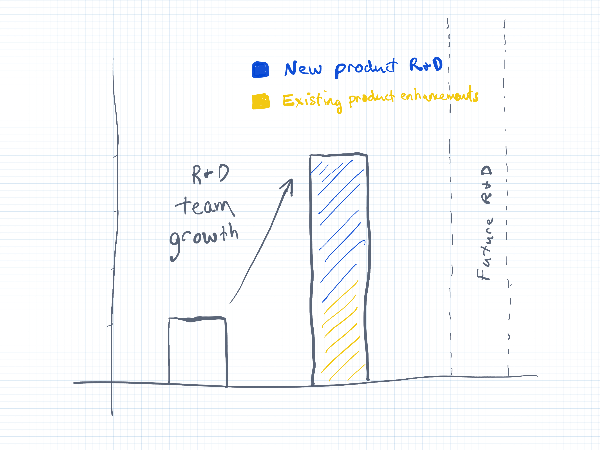 New product R+D
Existing product enhancements
R+D
team
growth
Future R+D